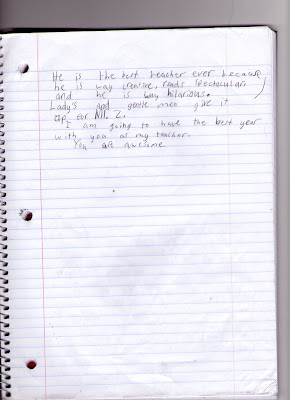 He is the best teacher ever because
he is way creative, reads spectacular,
and he is way hilarious.
Lady's and gentle men give it
up for Mr. Z.
I am going to have the best year
with you as my teacher.
You are awesome.